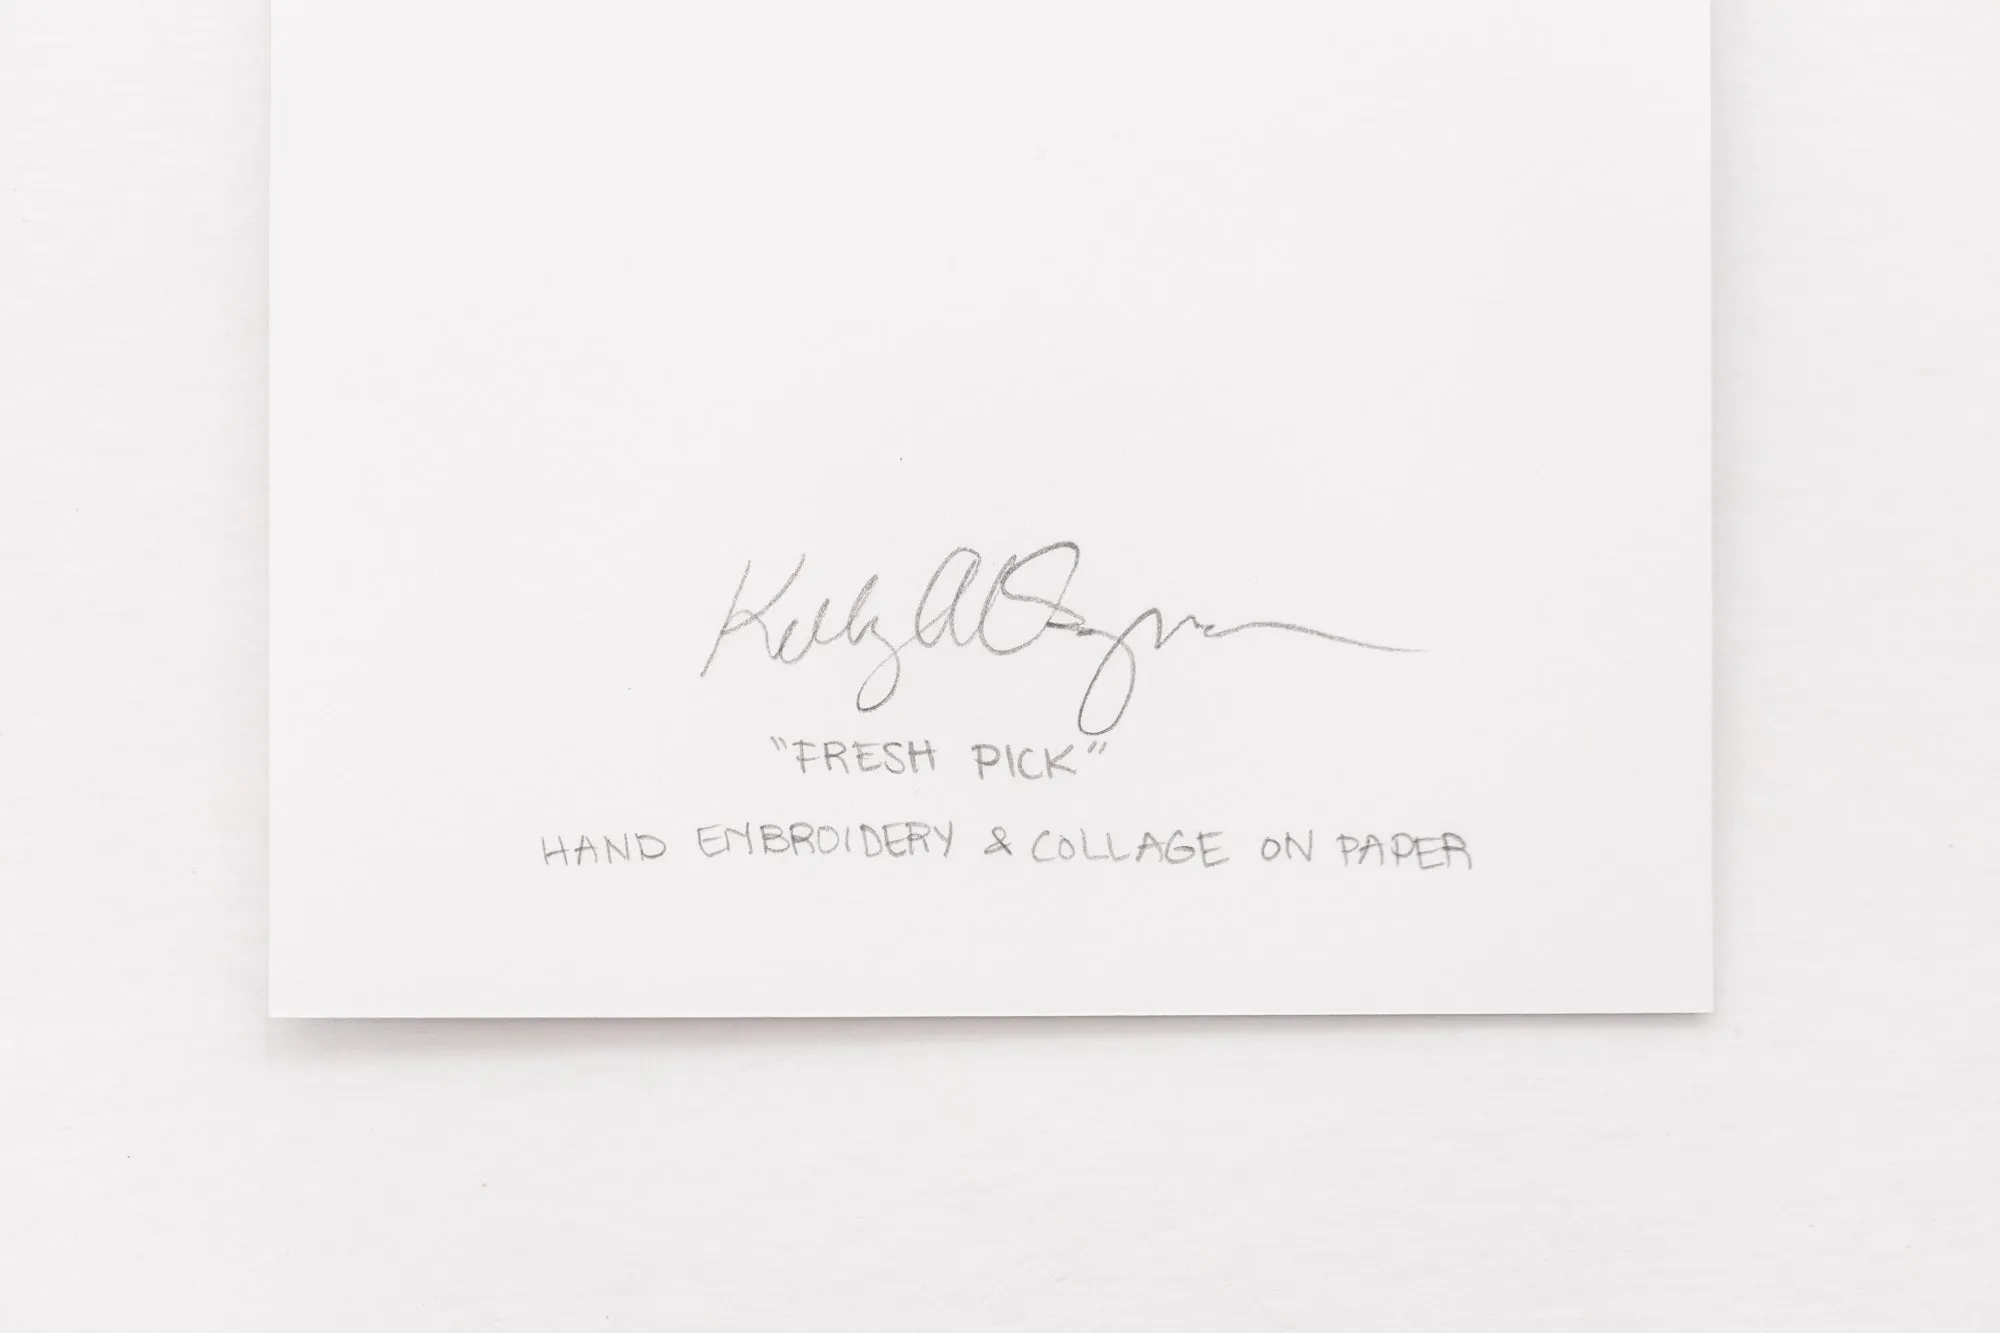 Kelly
"FRESH PICK"
HAND EMBROIDERY & COLLAGE ON PAPER